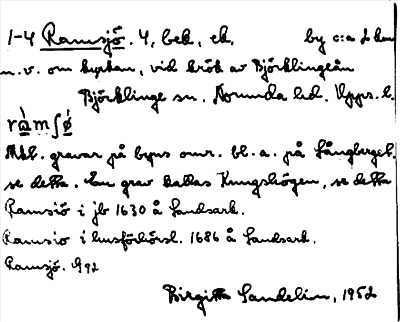 1-4 Ramsjö. 4, bek, ek. by c:a 2 km
n.v. om kyrkan, vid krök av Björklingeån
Björklinge sn. Norunda hd. Upps. l.
Mkt. gravar på byns omr. bl.a. på Långberget,
se detta. En grav kallas Kungshögen, se detta
Ramsiö i jb 1630 å Landsark.
Ramsio i husförhörsl. 1686 å Landsark.
Ramsjö. G 92
Birgitta Sandelin, 1952